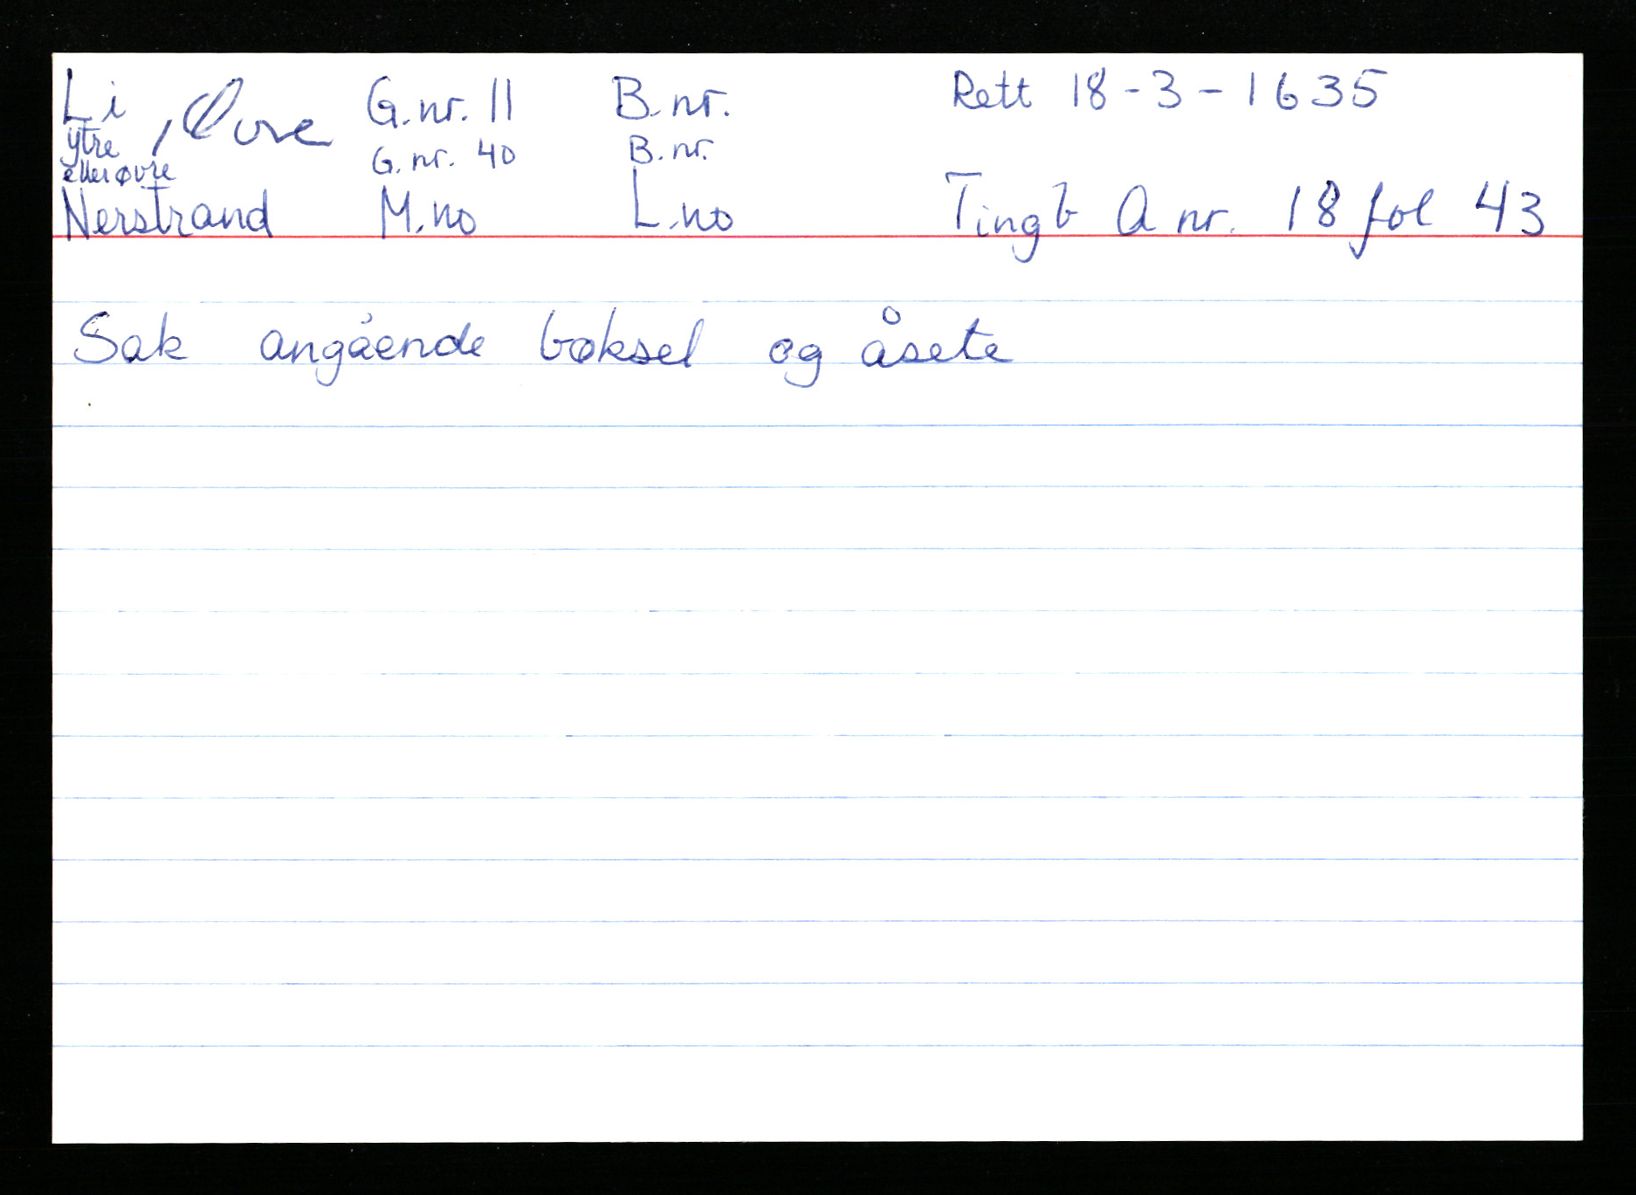 Li, Øvre G.nr. 11 B.nr. Rett 18-3-1635
ytre G.nr. 40 B.nr.
eller øvre
Nerstrand M.no L.no Tingb A nr. 18 fol 43
Sak angående bøksel og åsete